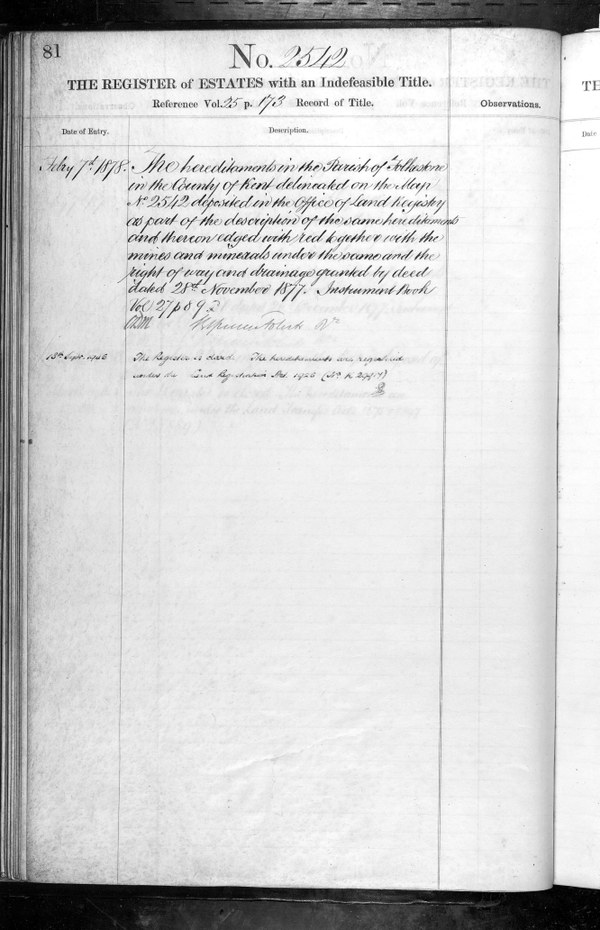 81
No. 2542
THE REGISTER of ESTATES with an Indefeasible Title.
Reference Vol. 25 p. 173 Record of Title.
Observations.
Date of Entry.
Description.
Feby 7th 1878. The hereditaments in the Parish of Folkestone
in the County of Kent delineated on the Map
No 2542 deposited in the Office of Land Registry
as part of the description of the same hereditaments
and thereon edged with red together with the
mines and minerals under the same and the
right of way and drainage granted by deed
dated 28th November 1877. Instrument Book
Vol 27 p
13th Sept. 1926 The Register is closed. The hereditaments are registered
under the Land Registration Act. 1925 (
TH
Date